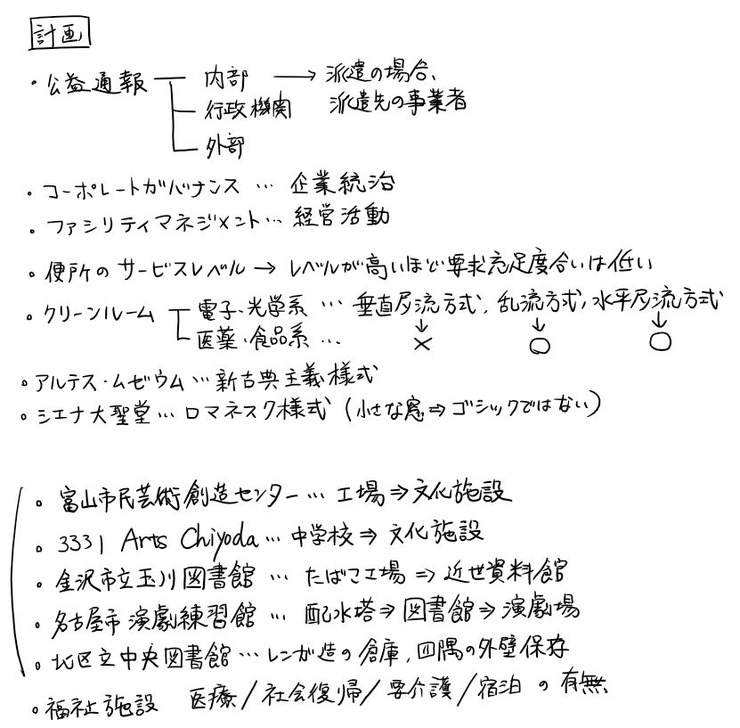 計画
・公益通報 内部 → 派遣の場合、
行政機関 派遣先の事業者
外部
・コーポレートガバナンス … 企業統治
・ファシリティマネジメント … 経営活動
・便所のサービスレベル → レベルが高いほど要求充足度合いは低い
・クリーンルーム 電子・光学系 … 垂直層流方式, 乱流方式, 水平層流方式
↓ ↓ ↓
医薬・食品系 … × ○ ○
・アルテス・ムゼウム … 新古典主義様式
・シエナ大聖堂 … ロマネスク様式 (小さな窓⇒ゴシックではない)
・富山市民芸術創造センター … 工場⇒文化施設
・3331 Arts Chiyoda … 中学校⇒文化施設
・金沢市立玉川図書館 … たばこ工場⇒近世資料館
・名古屋市演劇練習館 … 配水塔⇒図書館⇒演劇場
・北区立中央図書館 … レンガ造の倉庫, 四隅の外壁保存
・福祉施設 医療/社会復帰/要介護/宿泊の有無